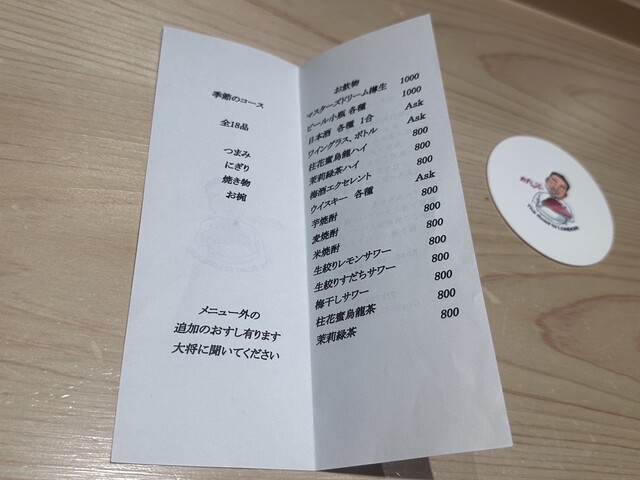 季節のコース
全18品
つまみ
にぎり
焼き物
お椀
メニュー外の
追加のおすし有ります
大将に聞いてください
お飲物
マスターズドリーム樽生 1000
ビール小瓶 各種 1000
日本酒 各種 1合 Ask
ワイングラス、ボトル Ask
柱花蜜烏龍ハイ 800
茉莉緑茶ハイ 800
梅酒エクセレント 800
ウイスキー 各種 Ask
芋焼酎 800
麦焼酎 800
米焼酎 800
生絞りレモンサワー 800
生絞りすだちサワー 800
梅干しサワー 800
柱花蜜烏龍茶 800
茉莉緑茶 800
LONDON